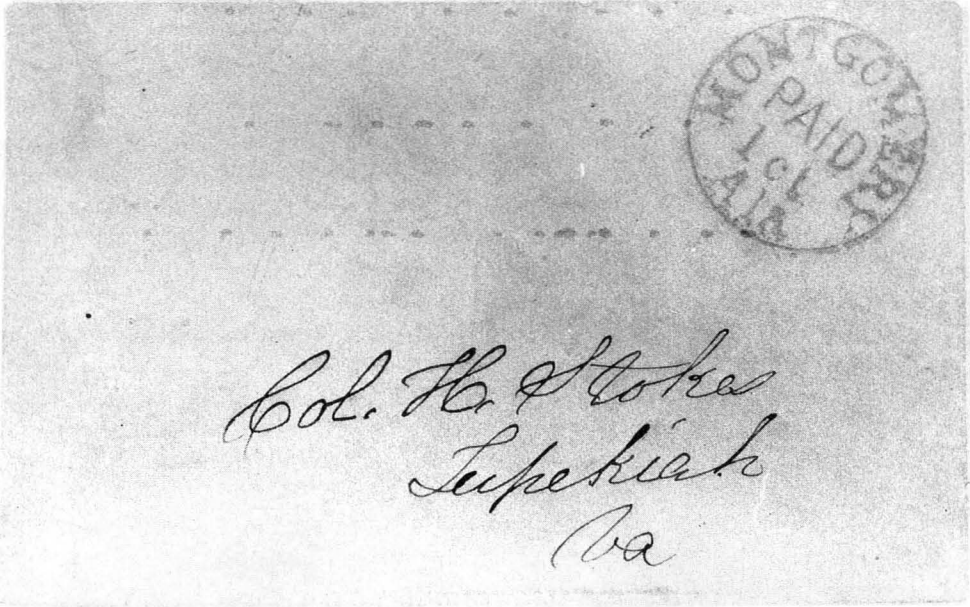 MONTGOMERY
PAID
1 ct
Ala
Col. H. Stokes
Tussekiah
Va